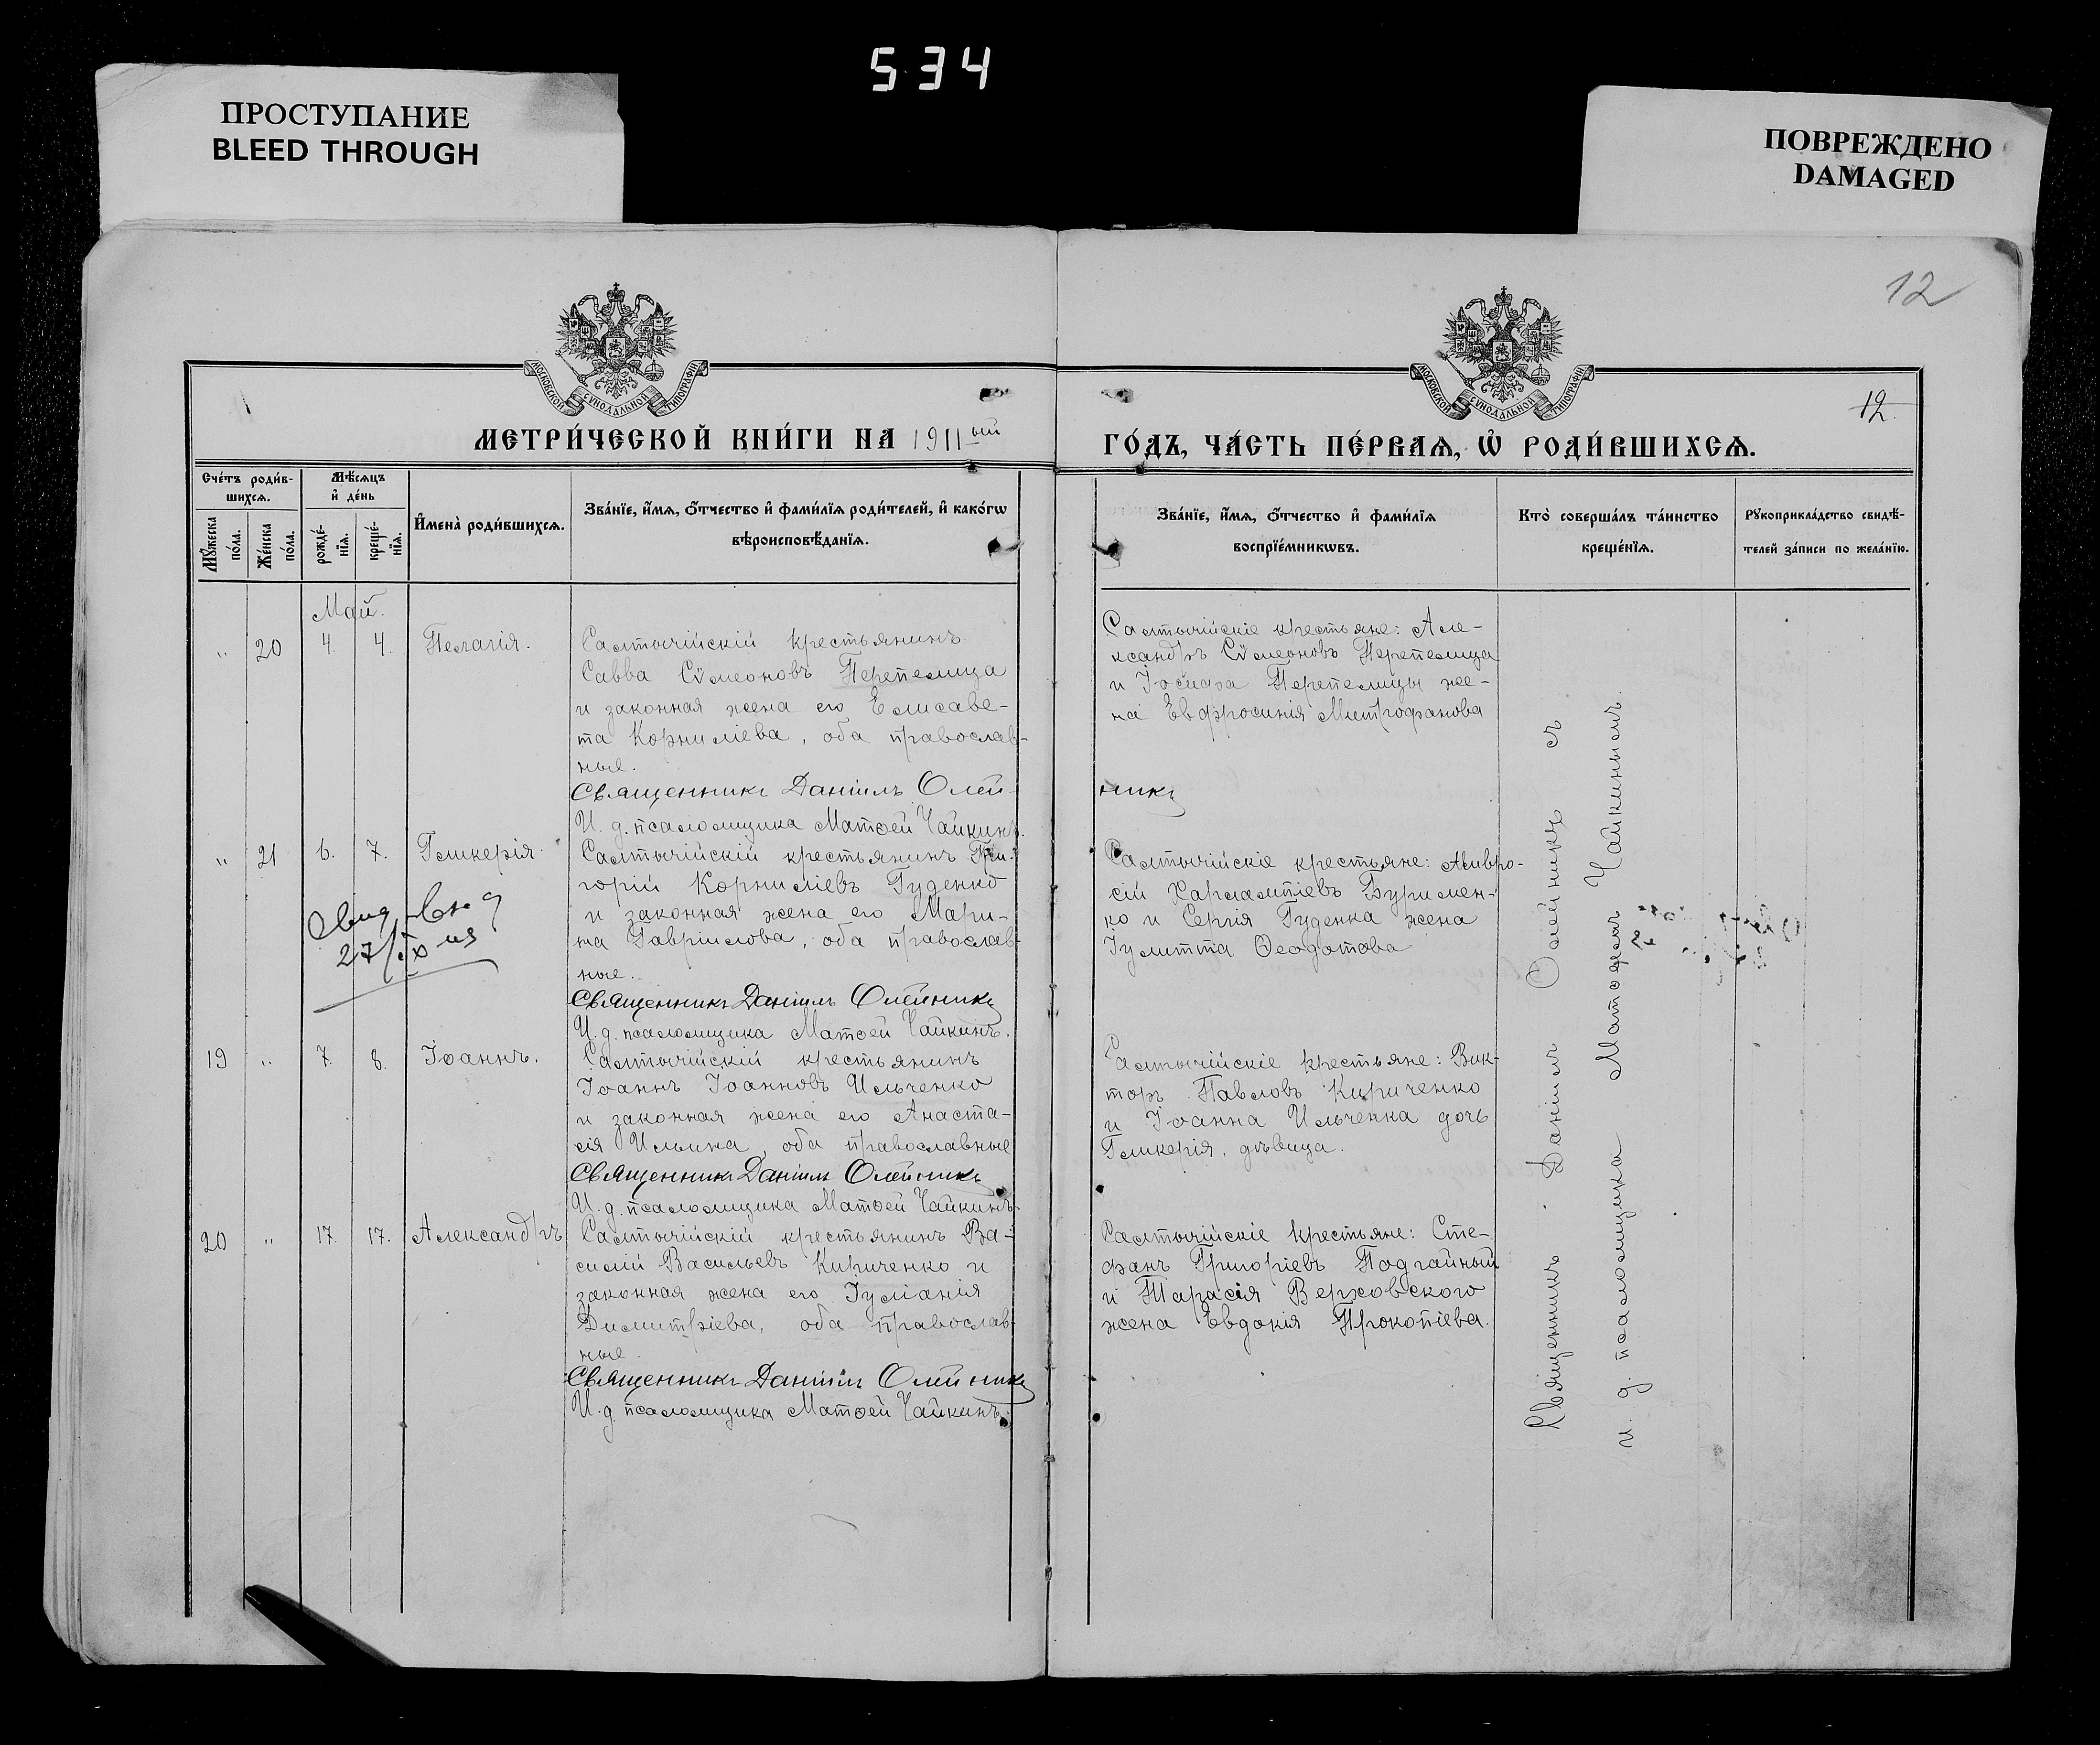 534
ПРОСТУПАНИЕ
BLEED THROUGH
ПОВРЕЖДЕНО
DAMAGED
12
МОСКОВСКОЙ СѴНОДАЛЬНОЙ ТИПОГРАФІИ
МОСКОВСКОЙ СѴНОДАЛЬНОЙ ТИПОГРАФІИ
12.
МЕТРИ́ЧЕСКОЙ КНИ́ГИ НА 1911ый
ГО́ДЪ, ЧА́СТЬ ПЕ́РВАѦ, Ѽ РОДИ́ВШИХСѦ.
Сче́тъ роди́в-
шихсѧ.
Мꙋ́жеска
по́ла.
Же́нска
по́ла.
Мѣ́сѧцъ
и҆ де́нь
рожде́-
нїѧ.
креще́-
нїѧ.
И҆мена̀ роди́вшихсѧ.
Зва́нїе, и҆́мѧ, ѻ҆́тчество и҆ фами́лїѧ роди́телей, и҆ како́гѡ
вѣроисповѣ́данїѧ.
Зва́нїе, и҆́мѧ, ѻ҆́тчество и҆ фами́лїѧ
воспрїе́мникѡвъ.
Кто̀ соверша́лъ та́инство
креще́нїѧ.
Рꙋкоприкла́дство свидѣ́-
телей за́писи по жела́нїю.
Май.
" 20 4. 4. Пелагія.
Салтычійскій крестьянинъ
Савва Сѵмеоновъ Перепелица
и законная жена его Елисаве-
та Корниліева, оба православ-
ные.
Священникъ Даніилъ Олей-
И. д. псаломщика Матѳей Чайкинъ.
Салтычійскіе крестьяне: Але-
ксандръ Сѵмеоновъ Перепелица
и Іосифа Перепелицы же-
на Евфросинія Митрофанова
никъ
" 21 6. 7. Гликерія.
Салтычійскій крестьянинъ Гри-
горій Корниліевъ Гуденко
и законная жена его Мари-
на Гавріилова, оба православ-
ные.
Священникъ Даніилъ Олейникъ
И. д. псаломщика Матѳей Чайкинъ.
Салтычійскіе крестьяне: Амвро-
сій Харлампіевъ Бурилен-
ко и Сергія Гуденка жена
Іулитта Ѳеодотова
27/IX
19 " 7. 8. Іоаннъ.
Салтычійскій крестьянинъ
Іоаннъ Іоанновъ Ильченко
и законная жена его Анаста-
сія Ильина, оба православные
Священникъ Даніилъ Олейникъ
И. д. псаломщика Матѳей Чайкинъ.
Салтычійскіе крестьяне: Вик-
торъ Павловъ Кириченко
и Іоанна Ильченка дочь
Гликерія, дѣвица.
20 " 17. 17. Александръ
Салтычійскій крестьянинъ Ва-
силій Васильевъ Кириченко и
законная жена его Іуліанія
Димитріева, оба православ-
ные.
Священникъ Даніилъ Олейникъ
И. д. псаломщика Матѳей Чайкинъ.
Салтычійскіе крестьяне: Сте-
фанъ Григоріевъ Подгайный
и Тарасія Верховского
жена Евдокія Прокопіева.
Священникъ Даніилъ Олейникъ съ
и. д. псаломщика Матѳеемъ Чайкинымъ.